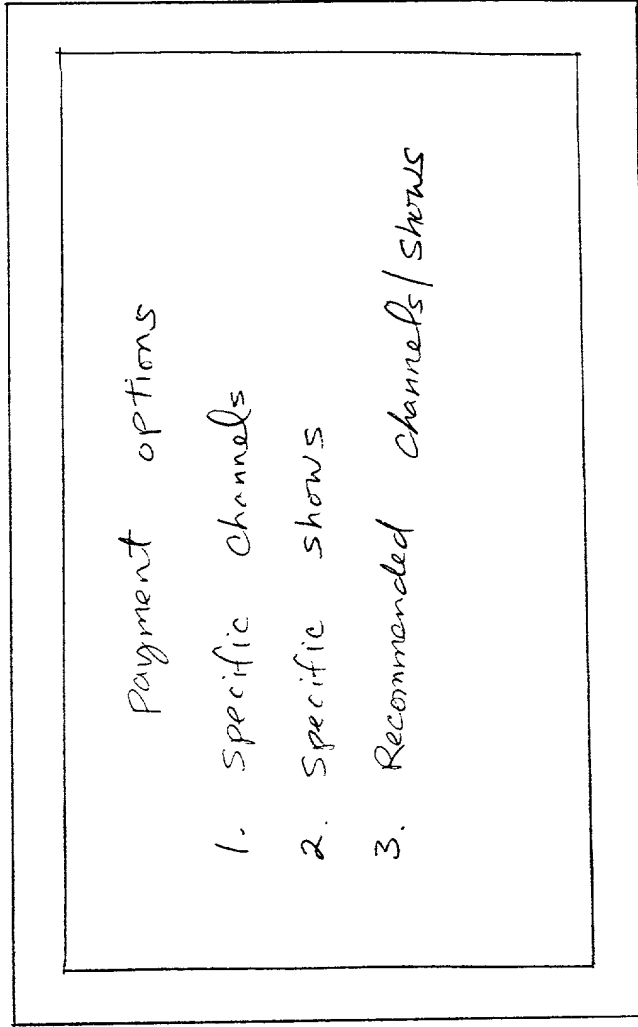 Payment options
1. Specific channels
2. Specific shows
3. Recommended channels/shows